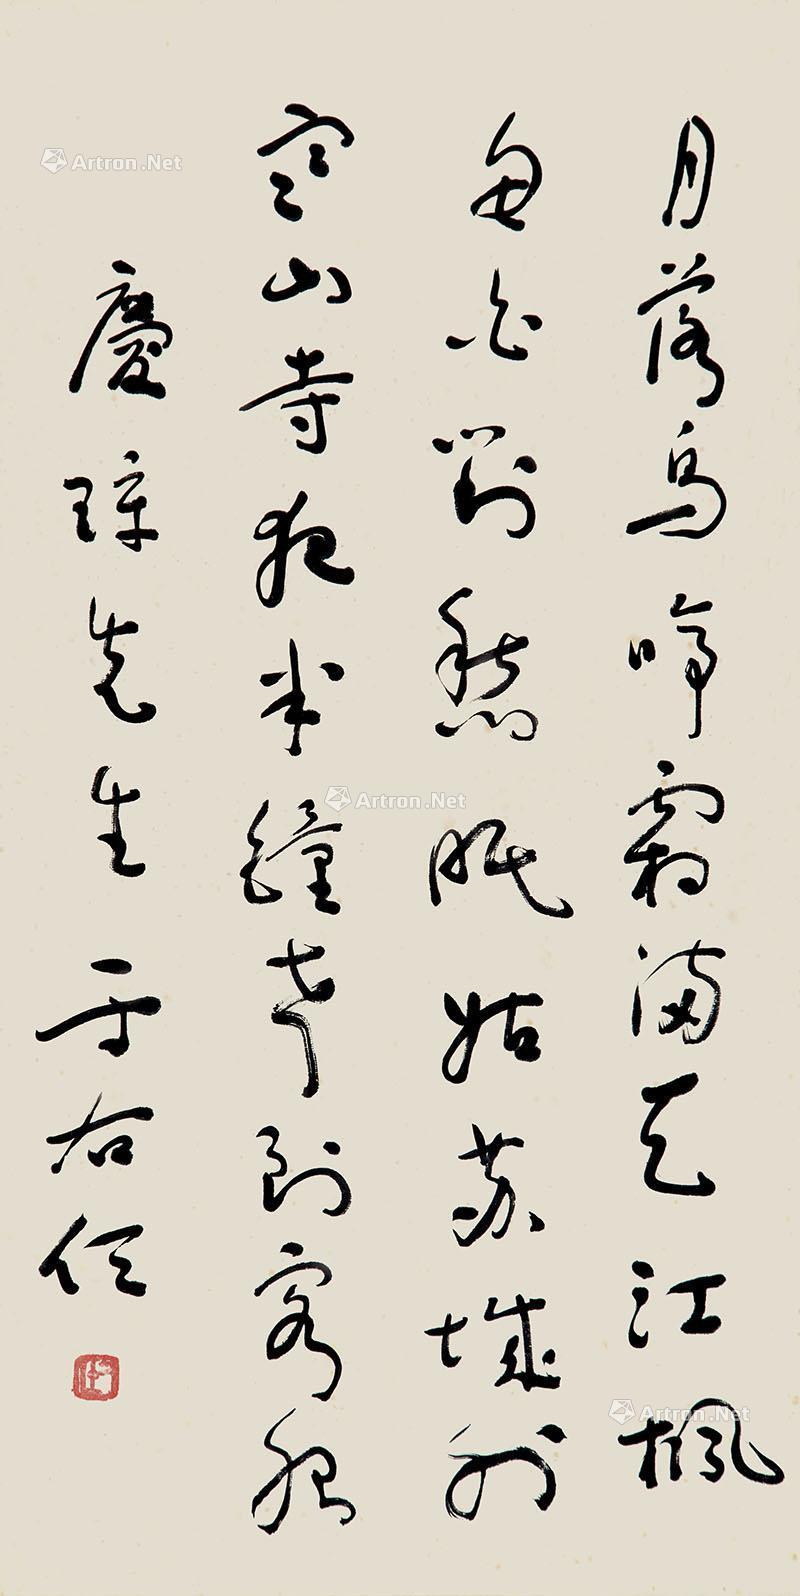 月落烏啼霜滿天江楓
魚火對愁眠姑蘇城外
寒山寺夜半鐘聲到客船
慶璋先生 于右任
Artron.Net
Artron.Net
Artron.Net